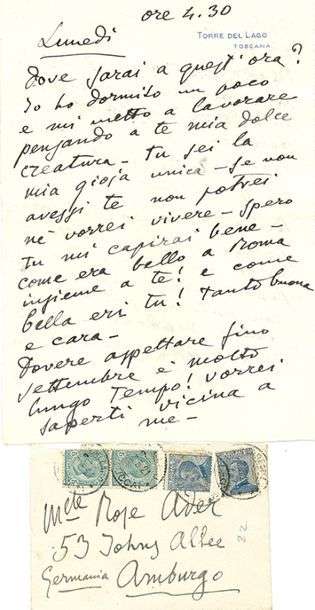 ore 4.30
Lunedì
TORRE DEL LAGO
TOSCANA
Dove sarai a quest'ora?
Io ho dormito un poco
e mi metto a lavorare
pensando a te mia dolce
creatura - tu sei la
mia gioja unica - se non
avessi te non potrei
nè vorrei vivere - spero
tu mi capirai bene -
come era bello a Roma
insieme a te! e come
bella eri tu! tanto buona
e cara -
Dovere aspettare fino
settembre è molto
lungo tempo! vorrei
saperti vicina a
me -
Mlle Rose Ader
53 Johns Allee
Germania Amburgo
22